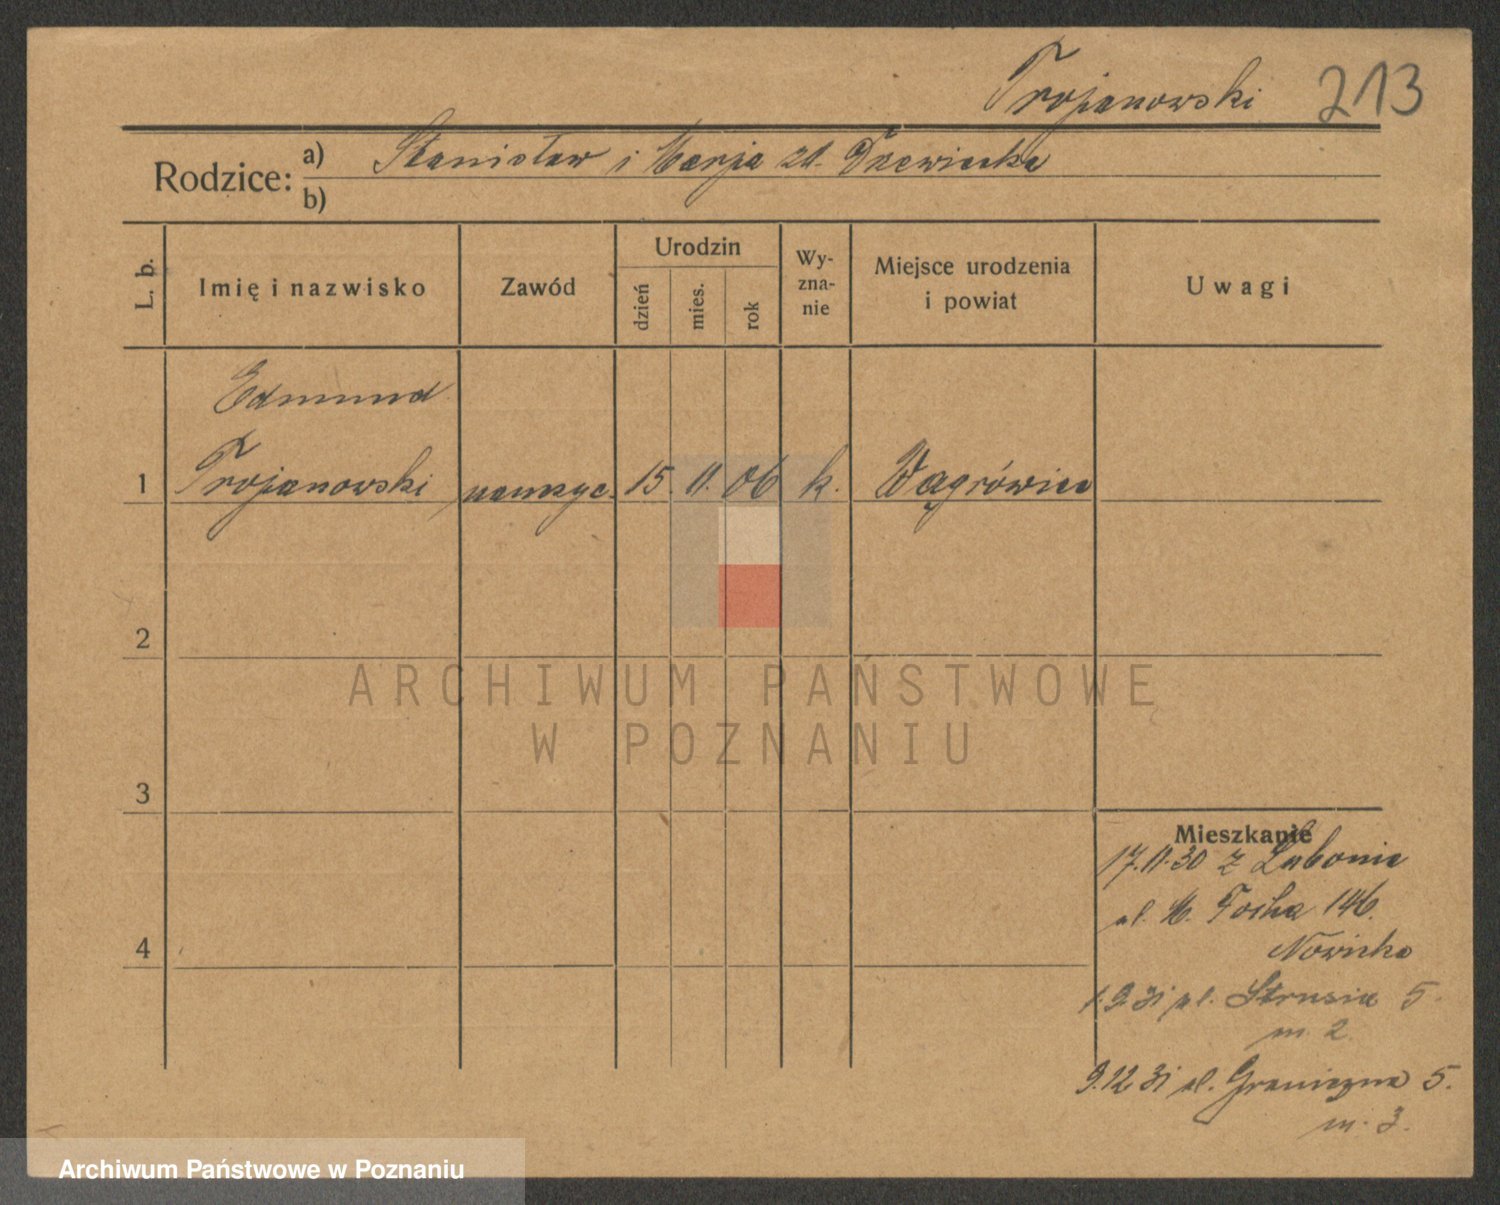 Trojanowski 213
Rodzice: a) Stanisław i Marja zd. Drewiecka
b)
L. b. Imię i nazwisko Zawód Urodzin dzień mies. rok Wyzna-nie Miejsce urodzenia i powiat Uwagi
Edmund
1 Trojanowski nauczyc. 15. 11. 06 k. Wągrówiec
2
ARCHIWUM PAŃSTWOWE
W POZNANIU
3
Mieszkanie
17.11.30 z Lubonia
ul. M. Focha 146.
4
Nowicka
1.9.31 ul. Strusia 5.
m. 2
9.12.31 ul. Graniczna 5.
m. 3.
Archiwum Państwowe w Poznaniu